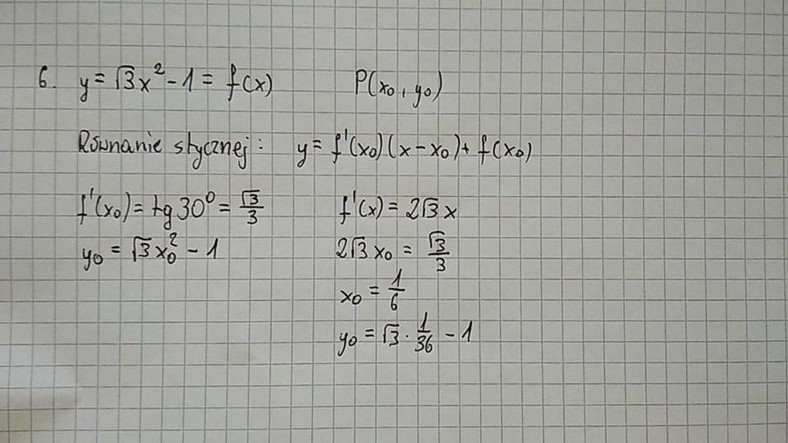 6. y = √3x² - 1 = f(x) P(x₀, y₀)
Równanie stycznej: y = f'(x₀)(x - x₀) + f(x₀)
f'(x₀) = tg 30° = √3/3 f'(x) = 2√3 x
y₀ = √3x₀² - 1 2√3 x₀ = √3/3
x₀ = 1/6
y₀ = √3 · 1/36 - 1